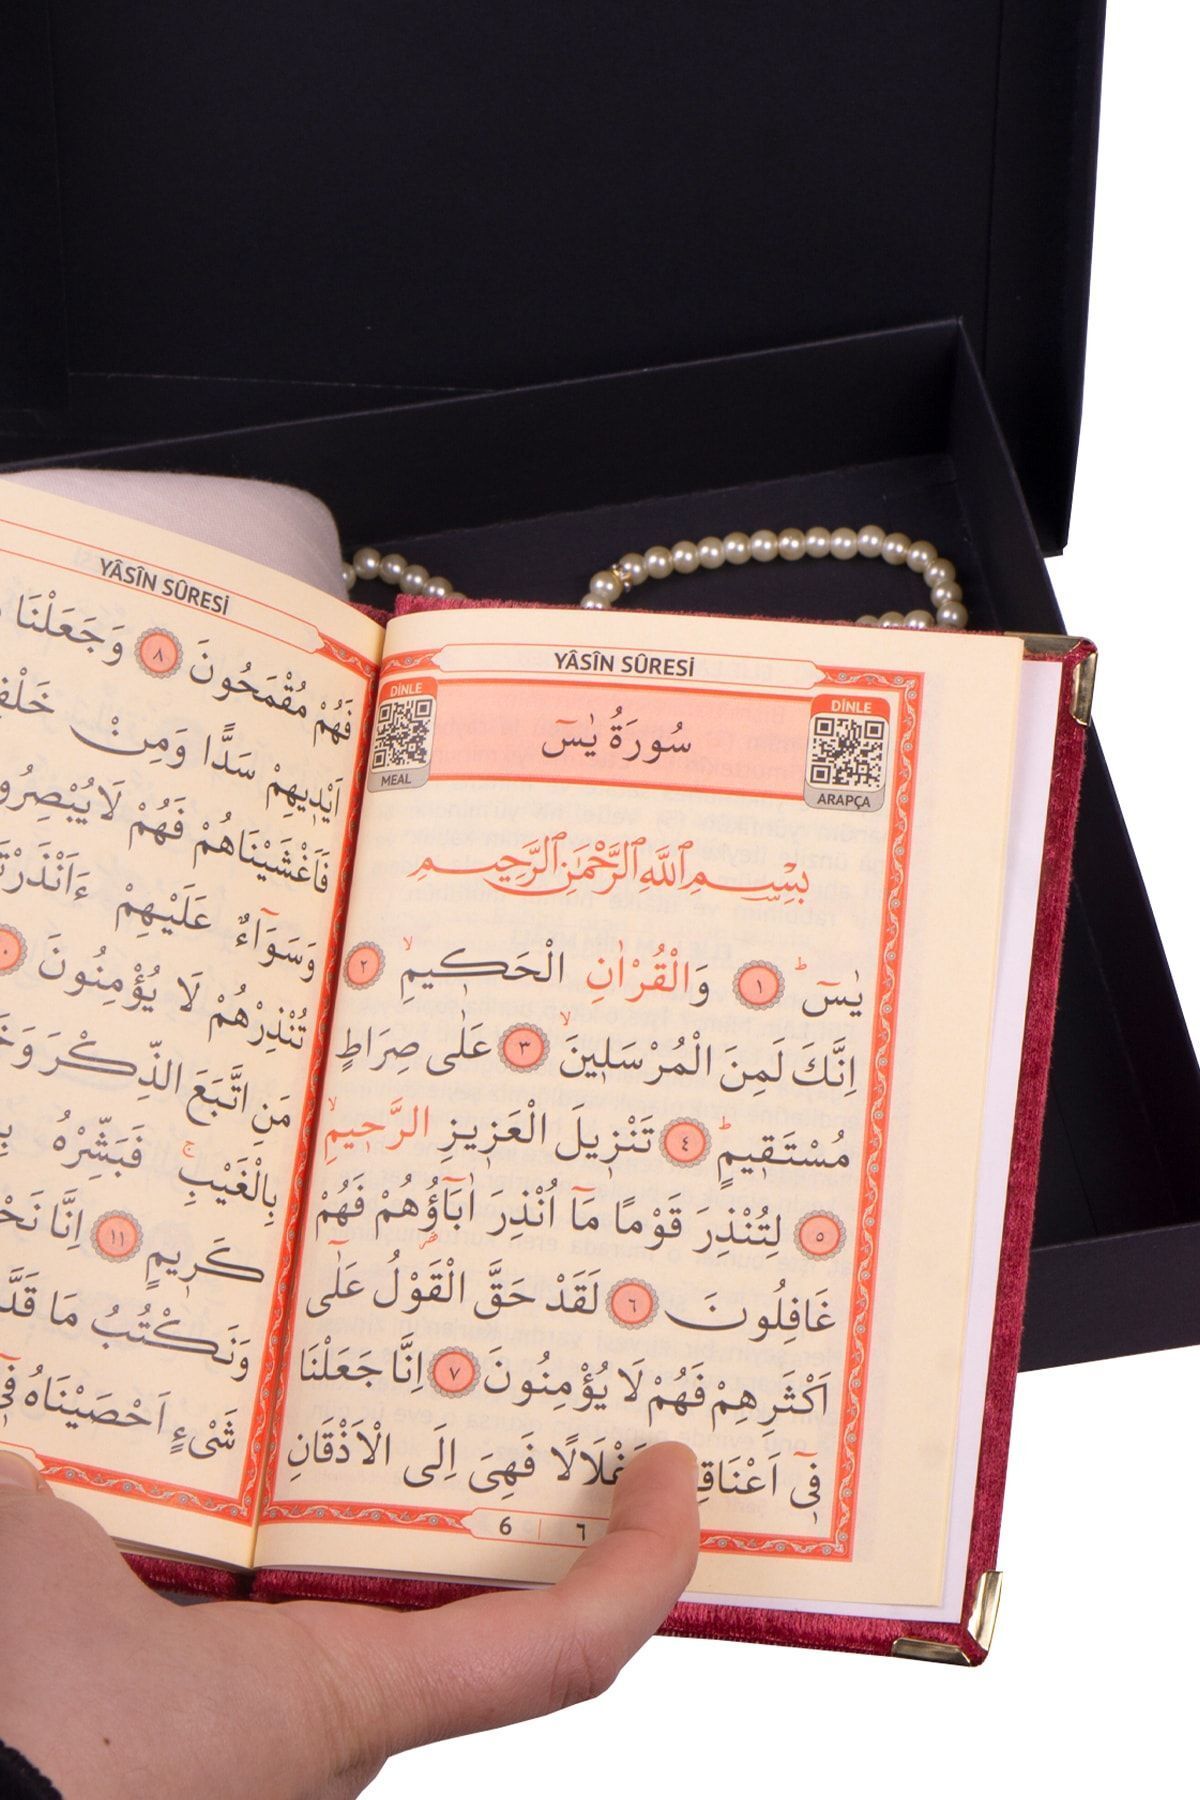 YÂSÎN SÛRESİ
DİNLE
MEAL
سُورَةُ يٰسٓ
DİNLE
ARAPÇA
بِسْمِ اللّٰهِ الرَّحْمٰنِ الرَّحِيمِ
يٰسٓ ۜ ١ وَالْقُرْاٰنِ الْحَكٖيمِۙ ٢
اِنَّكَ لَمِنَ الْمُرْسَلٖينَۙ ٣ عَلٰى صِرَاطٍ
مُسْتَقٖيمٍۜ ٤ تَنْزٖيلَ الْعَزٖيزِ الرَّحٖيمِۙ
٥ لِتُنْذِرَ قَوْمًا مَٓا اُنْذِرَ اٰبَٓاؤُ۬هُمْ فَهُمْ
غَافِلُونَ ٦ لَقَدْ حَقَّ الْقَوْلُ عَلٰٓى
اَكْثَرِهِمْ فَهُمْ لَا يُؤْمِنُونَ ٧ اِنَّا جَعَلْنَا
فٖٓي فَهِيَ اِلَى الْاَذْقَانِ
6 | ٦
YÂSÎN SÛRESİ
فَهُمْ مُقْمَحُونَ ٨ وَجَعَلْنَا
اَيْدٖيهِمْ سَدًّا وَمِنْ
فَاَغْشَيْنَاهُمْ فَهُمْ لَا
وَسَوَٓاءٌ عَلَيْهِمْ
تُنْذِرْهُمْ لَا يُؤْمِنُونَ
مَنِ اتَّبَعَ الذِّكْرَ
بِالْغَيْبِۚ فَبَشِّرْهُ
كَرٖيمٍ ١١ اِنَّا
وَنَكْتُبُ مَا
شَيْءٍ اَحْصَيْنَاهُ